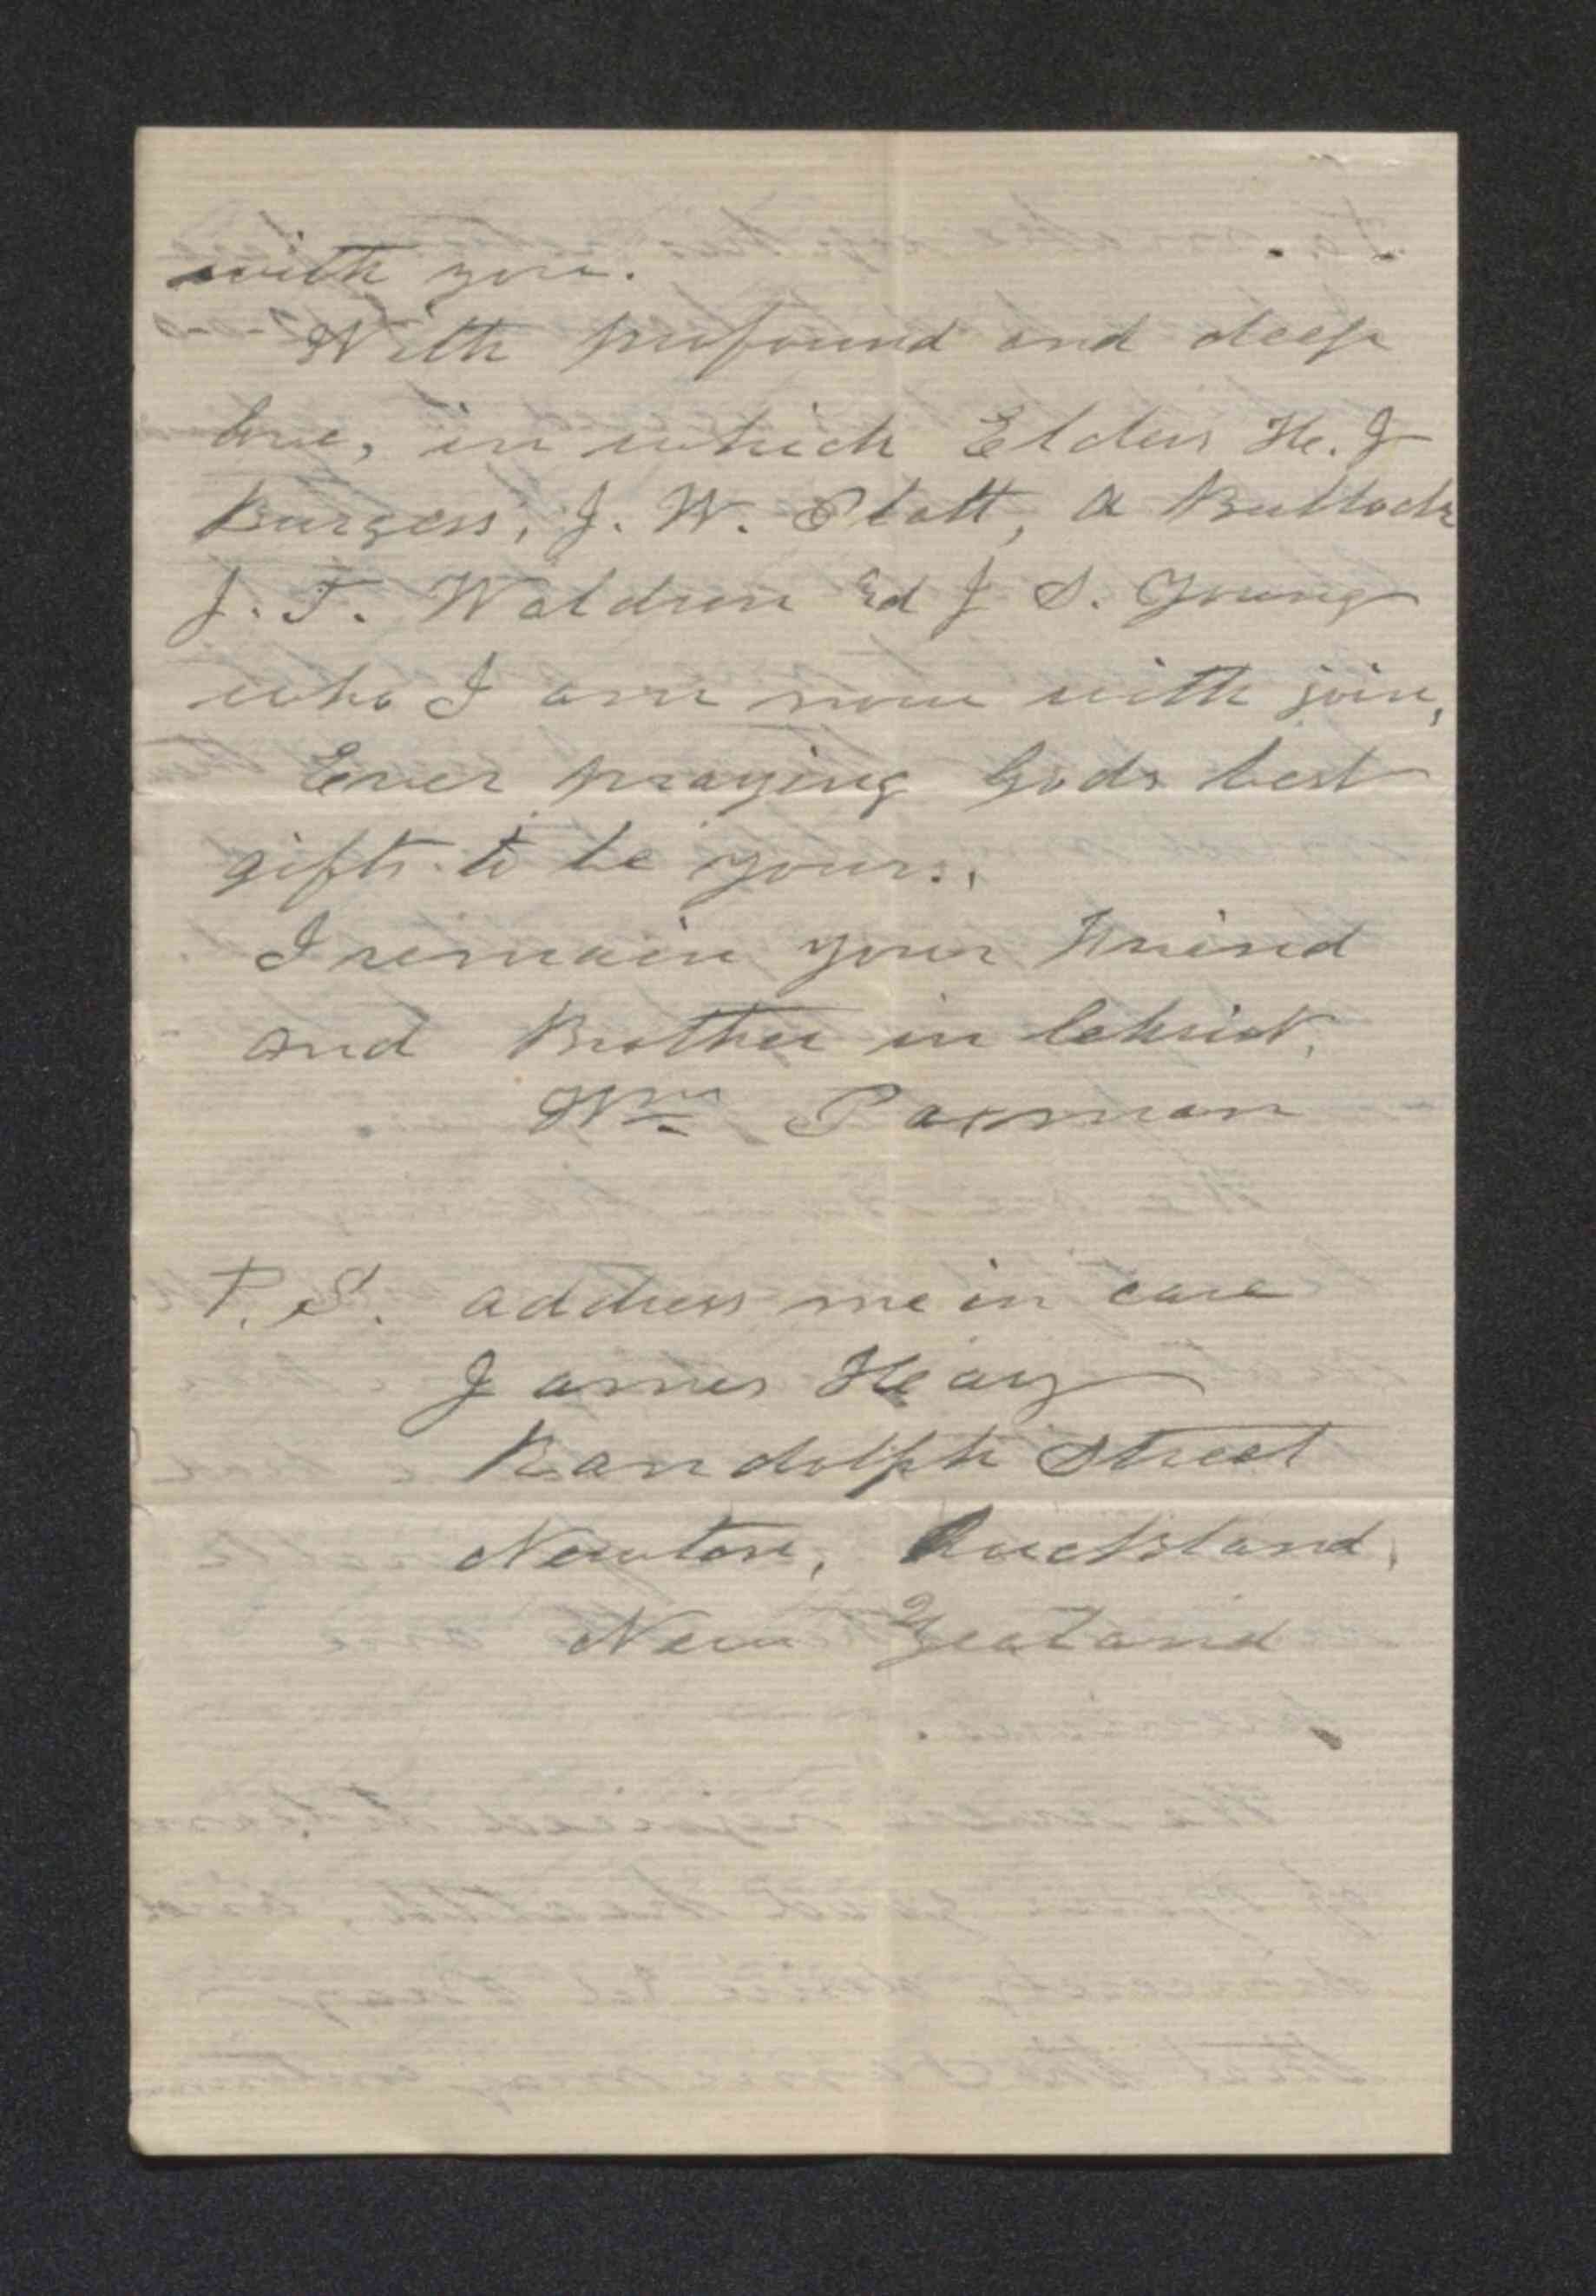 with you.
With profound and deep
love, in which Elders H. J
Burgess, J. W. Platt, A Bullock
J. T. Waldron & J S. Young
who I am now with join,
Ever praying Gods best
gifts to be yours.
I remain your Friend
and Brother in Christ,
Wm Paxman
P. S. address me in care
James Heay
Randolph Street
Newton, Auckland,
New Zealand